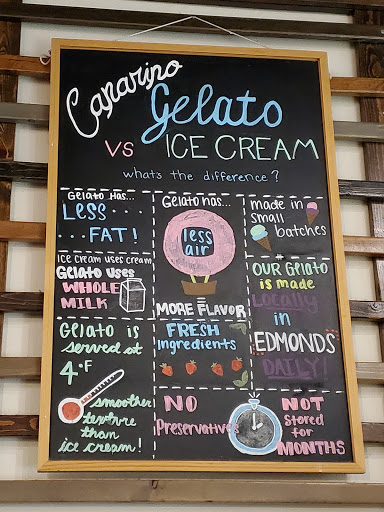 Caparino
Gelato
VS ICE CREAM
what's the difference?
Gelato Has...
LESS...
...FAT!
Ice cream uses cream
Gelato uses
WHOLE
MILK
GELATO is
served at
4°F
smoother
texture
than
ice cream!
Gelato has...
less
air
= MORE FLAVOR
FRESH
Ingredients
NO
Preservatives
made in
small
batches
OUR GELATO
is made
Locally
in
EDMONDS
DAILY!
NOT
Stored
for
MONTHS